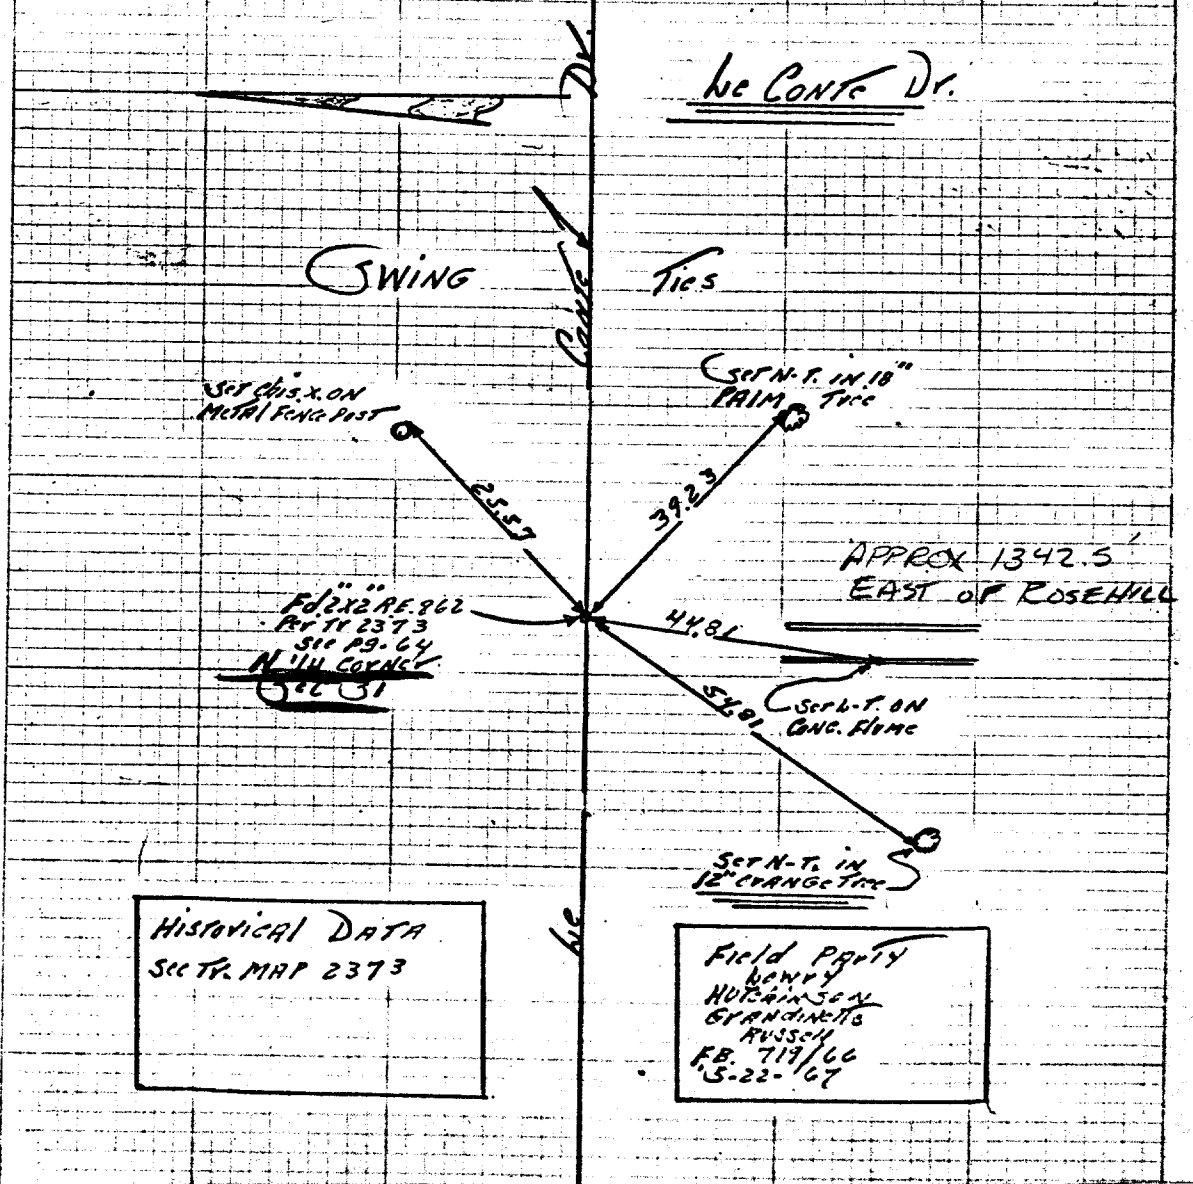 Le Conte Dr.
Le Conte Dr.
SWING Ties
Set Chis. X. ON
Metal Fence Post
Set N-T. in 18"
PALM Tree
25.57
39.23
APPROX 1342.5'
EAST OF ROSEHILL
Fd 2"x2" R.E. 862
Per Tr 2373
See Pg. 64
N 1/4 Corner
Sec 31
44.81
54.81
Set L-T. ON
Conc. Flume
Set N-T. in
12" ORANGE Tree
Historical DATA
See Tr. MAP 2373
Field Party
Lowry
Hutchinson
Russell
F.B. 719/66
5-22-'67